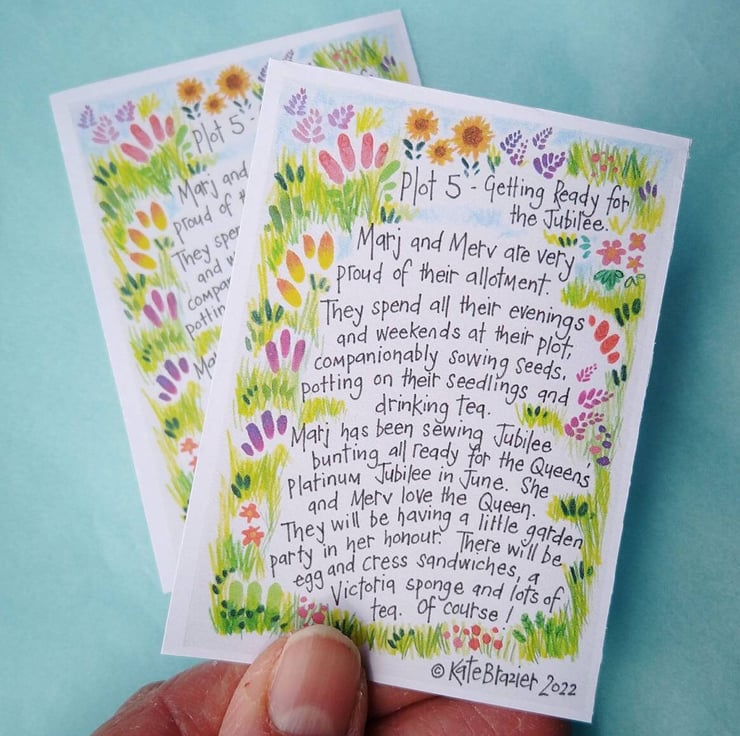 Plot 5 -
Marj and
proud of
They spe
and w
compa
pottin
Ma
Plot 5 - Getting Ready for
the Jubilee.
Marj and Merv are very
proud of their allotment.
They spend all their evenings
and weekends at their plot,
companionably sowing seeds,
potting on their seedlings and
drinking tea.
Marj has been sewing Jubilee
bunting all ready for the Queen's
Platinum Jubilee in June. She
and Merv love the Queen.
They will be having a little garden
party in her honour. There will be
egg and cress sandwiches, a
Victoria sponge and lots of
tea. Of course!
© Kate Brazier 2022